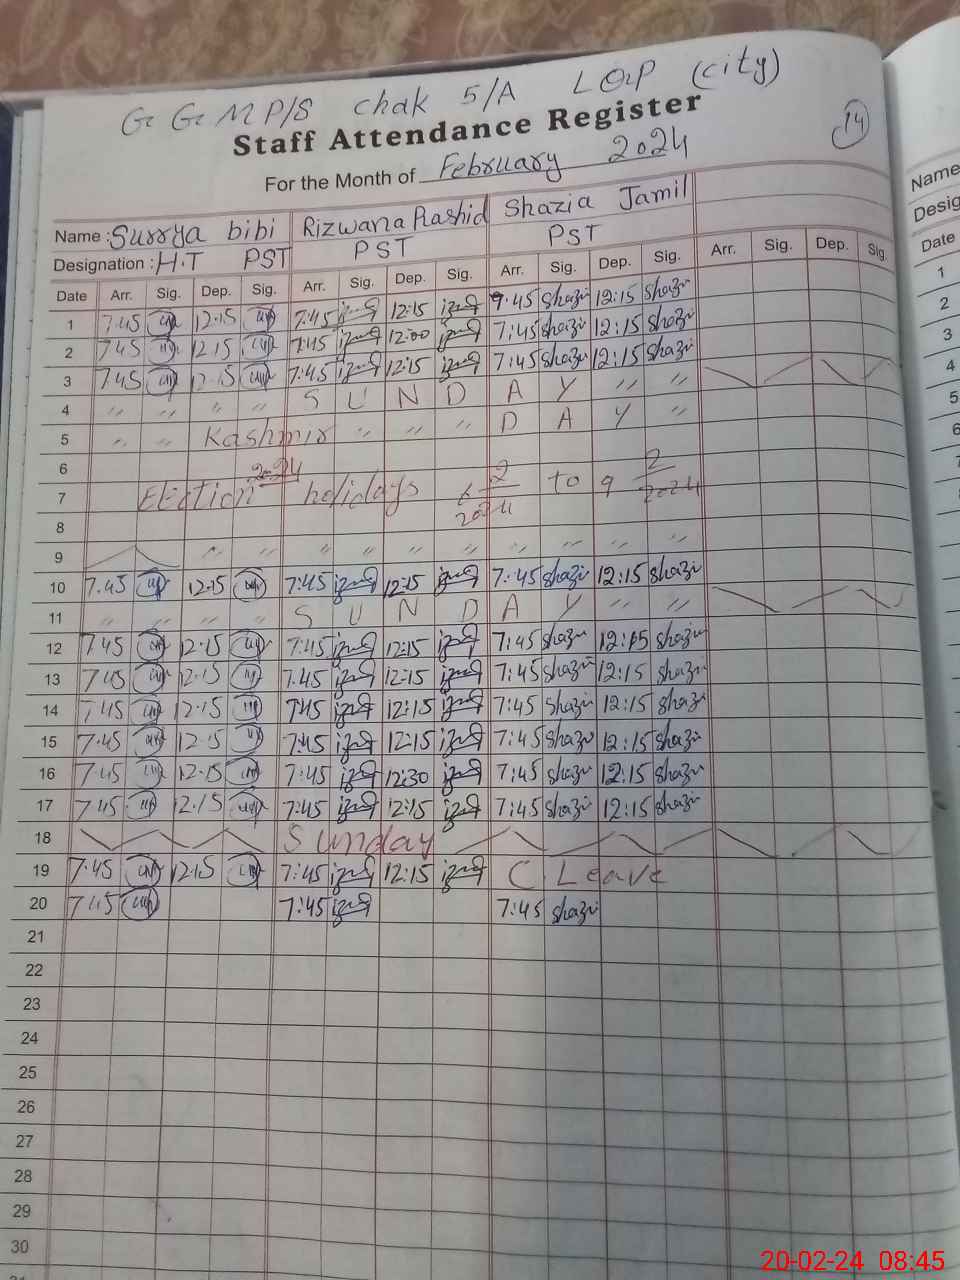 G G M P/S Chak 5/A LQP (city)
Staff Attendance Register
14
For the Month of February 2024
Name : Surrya bibi Rizwana Rashid Shazia Jamil
Designation : H.T PST PST PST
Date Arr. Sig. Dep. Sig. Arr. Sig. Dep. Sig. Arr. Sig. Dep. Sig. Arr. Sig. Dep. Sig.
1 7:45 12:15 7:45 12:15 7:45 Shazi 12:15 Shazi
2 7:45 12:15 7:45 12:00 7:45 Shazi 12:15 Shazi
3 7:45 12:15 7:45 12:15 7:45 Shazi 12:15 Shazi
4 " " " " S U N D A Y " "
5 " " Kashmir " " " D A Y "
6
7 Election 2024 holidays 6 2/2024 to 9 2/2024
8
9 " " " " " " " " " "
10 7:45 12:15 7:45 12:15 7:45 Shazi 12:15 Shazi
11 " " " " S U N D A Y " "
12 7:45 12:15 7:45 12:15 7:45 Shazi 12:15 Shazi
13 7:45 12:15 7:45 12:15 7:45 Shazi 12:15 Shazi
14 7:45 12:15 7:45 12:15 7:45 Shazi 12:15 Shazi
15 7:45 12:15 7:45 12:15 7:45 Shazi 12:15 Shazi
16 7:45 12:15 7:45 12:30 7:45 Shazi 12:15 Shazi
17 7:45 12:15 7:45 12:15 7:45 Shazi 12:15 Shazi
18 Sunday
19 7:45 12:15 7:45 12:15 C. Leave
20 7:45 7:45 7:45 Shazi
21
22
23
24
25
26
27
28
29
30
Name
Desig
Date
1
2
3
4
5
6
20-02-24 08:45